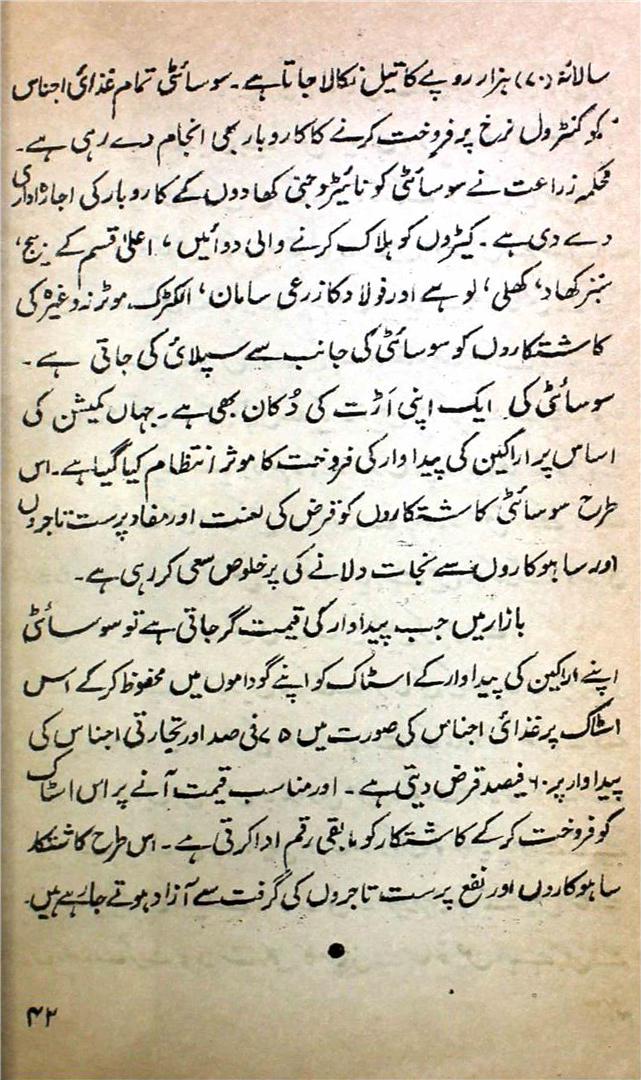 سالانہ (۷۰) ہزار روپے کا تیل نکالا جاتا ہے۔ سوسائٹی تمام غذائی اجناس
کو کنٹرول نرخ پر فروخت کرنے کا کاروبار بھی انجام دے رہی ہے۔
محکمہ زراعت نے سوسائٹی کو نائیٹروجنی کھادوں کے کاروبار کی اجازہ داری
دے دی ہے۔ کیڑوں کو ہلاک کرنے والی دوائیں، اعلیٰ قسم کے بیج،
سبز کھاد، کھلی، لوہے اور فولاد کا زرعی سامان، الکٹرک موٹر نہ وغیرہ کی
کاشتکاروں کو سوسائٹی کی جانب سے سپلائی کی جاتی ہے۔
سوسائٹی کی ایک اپنی اَڑت کی دُکان بھی ہے۔ جہاں کمیشن کی
اساس پر اراکین کی پیداوار کی فروخت کا موثر انتظام کیا گیا ہے۔ اس
طرح سوسائٹی کاشتکاروں کو قرض کی لعنت اور مفاد پرست تاجروں
اور ساہوکاروں سے نجات دلانے کی پرخلوص سعی کر رہی ہے۔
بازار میں جب پیداوار کی قیمت گر جاتی ہے تو سوسائٹی
اپنے اراکین کی پیداوار کے اسٹاک کو اپنے گوداموں میں محفوظ کر کے اس
اسٹاک پر غذائی اجناس کی صورت میں ۷۵ فی صد اور تجارتی اجناس کی
پیداوار پر ۶۰ فیصد قرض دیتی ہے۔ اور مناسب قیمت آنے پر اس اسٹاک
کو فروخت کر کے کاشتکار کو مابقی رقم ادا کرتی ہے۔ اس طرح کاشتکار
ساہوکاروں اور نفع پرست تاجروں کی گرفت سے آزاد ہوتے جا رہے ہیں۔
۴۲